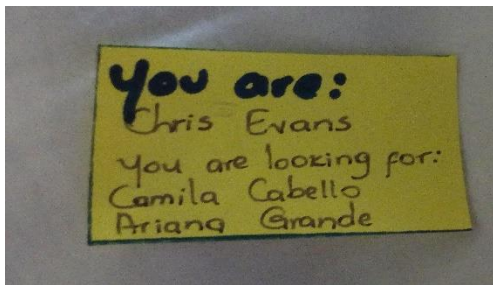 You are:
Chris Evans
you are looking for:
Camila Cabello
Ariana Grande